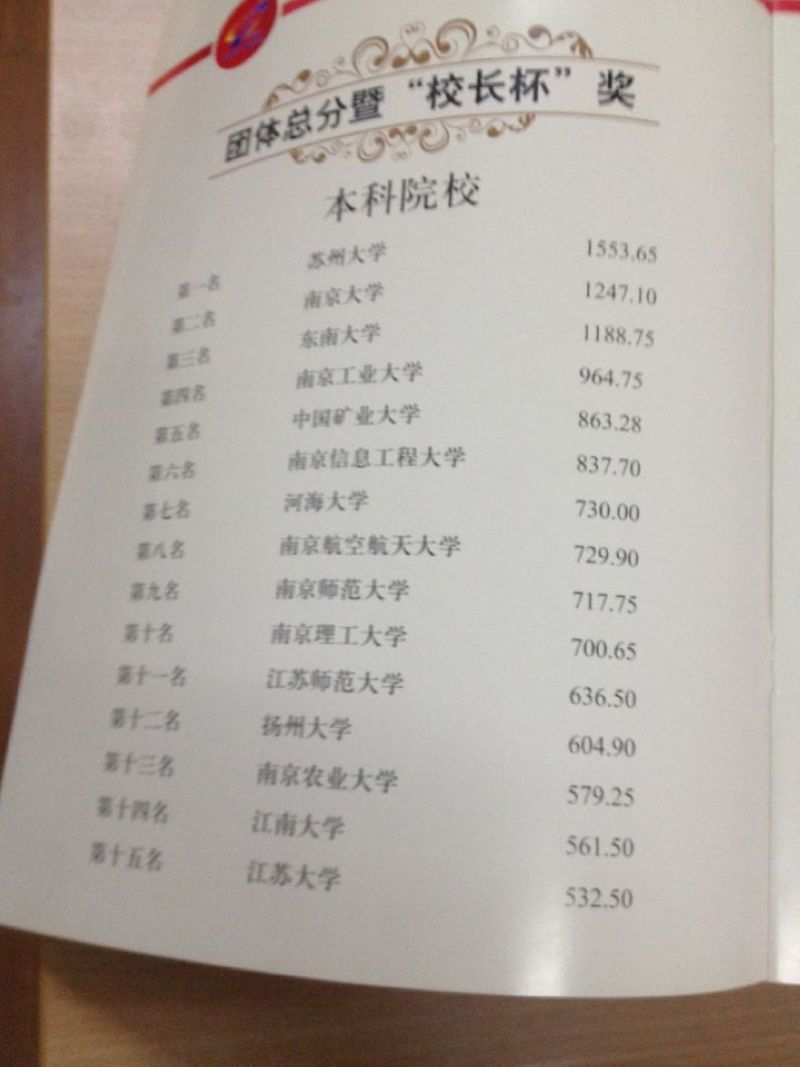 团体总分暨“校长杯”奖
本科院校
第一名 苏州大学 1553.65
第二名 南京大学 1247.10
第三名 东南大学 1188.75
第四名 南京工业大学 964.75
第五名 中国矿业大学 863.28
第六名 南京信息工程大学 837.70
第七名 河海大学 730.00
第八名 南京航空航天大学 729.90
第九名 南京师范大学 717.75
第十名 南京理工大学 700.65
第十一名 江苏师范大学 636.50
第十二名 扬州大学 604.90
第十三名 南京农业大学 579.25
第十四名 江南大学 561.50
第十五名 江苏大学 532.50